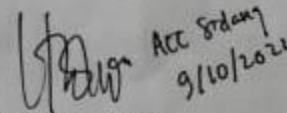 Acc Sidang
9/10/2021